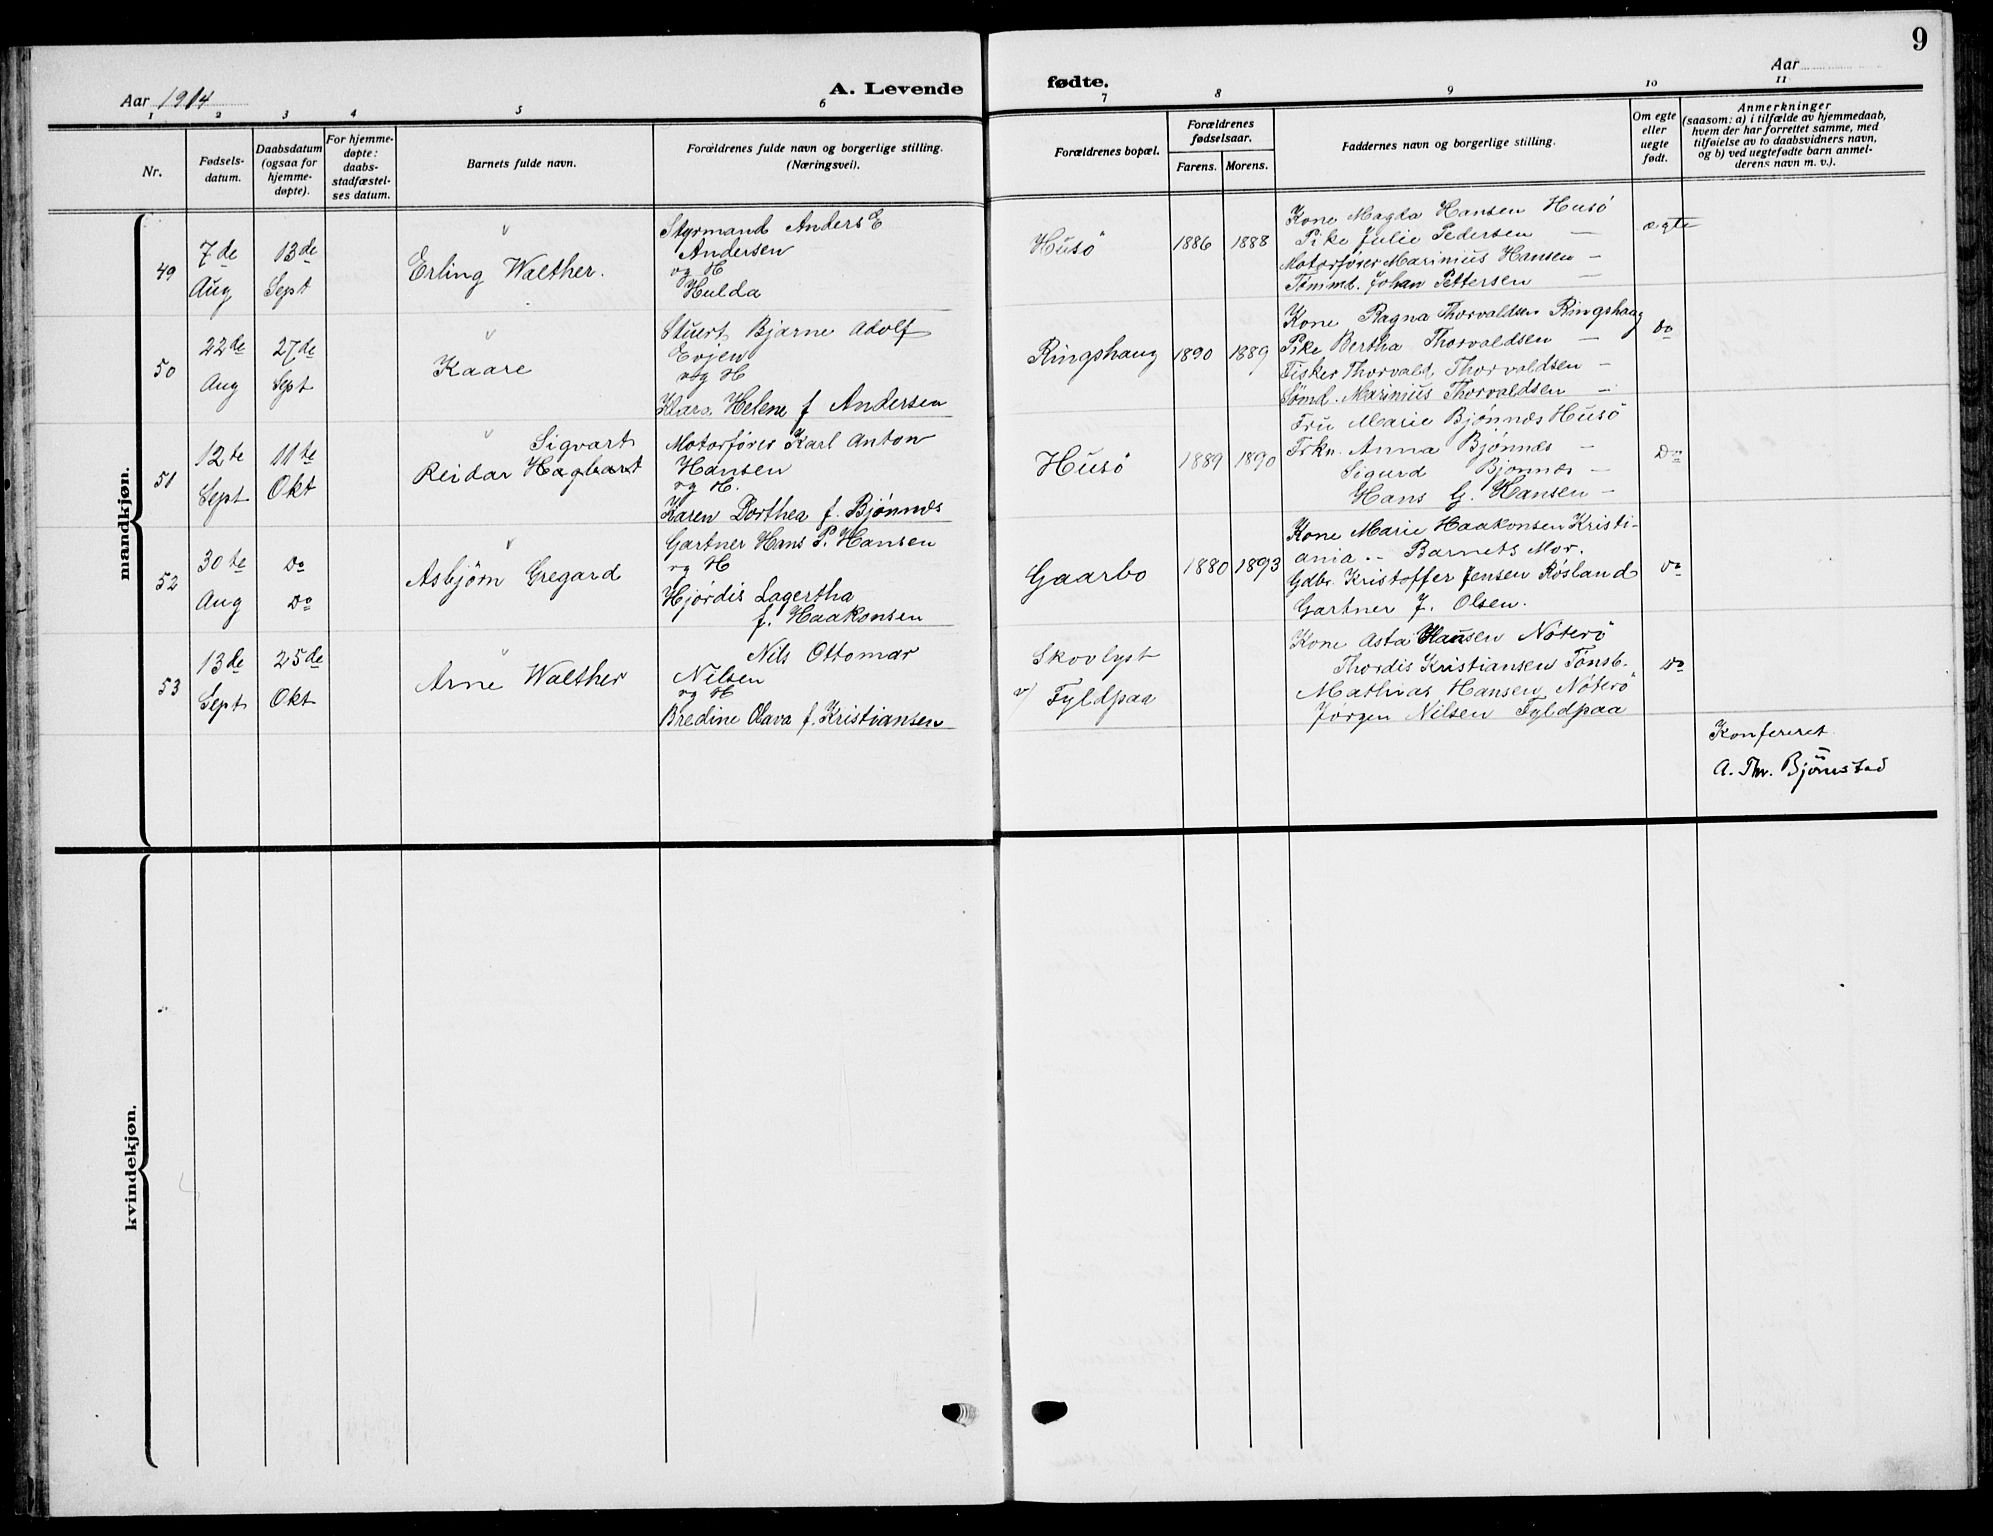 9
Aar 1914
A. Levende fødte.
Aar
1 2 3 4 5 6 7 8 9 10 11
Nr.
Fødsels-
datum.
Daabsdatum
(ogsaa for
hjemme-
døpte).
For hjemme-
døpte:
daabs-
stadfæstel-
ses datum.
Barnets fulde navn.
Forældrenes fulde navn og borgerlige stilling.
(Næringsvei).
Forældrenes bopæl.
Forældrenes
fødselsaar.
Farens. Morens.
Faddernes navn og borgerlige stilling.
Om egte
eller
uegte
født.
Anmerkninger
(saasom: a) i tilfælde av hjemmedaab,
hvem der har forrettet samme, med
tilføielse av to daabsvidners navn,
og b) ved uegtefødte barn anmel-
derens navn m. v.).
mandkjøn.
49
7de
Aug
13de
Sept
Erling Walther.
Styrmand Anders E
Andersen
og H
Hulda
Husö
1886 1888
Kone Magda Hansen Husö
Pike Julie Pedersen —
Motorfører Marinius Hansen —
Tømmd. Johan Pettersen —
ægte
50
22de
Aug
27de
Sept
Kaare
Stuert Bjarne Adolf
Evjen
og H
Klara Helene f Andersen
Ringshaug
1890 1889
Kone Ragna Thorvaldsen Ringshaug
Pike Bertha Thorvaldsen —
Fisker Thorvald Thorvaldsen —
Sømd. Marinius Thorvaldsen —
Do
51
12te
Sept
11te
Okt
Sigvart
Reidar Hagbart
Motorfører Karl Anton
Hansen
og H.
Karen Dorthea f. Bjønnes
Husö
1889 1890
Fru Marie Bjønnes Husö
Frkn. Anna Bjønnes —
Sigurd Bjønnes —
Hans G. Hansen —
Do
52
30te
Aug
Do
Do
Asbjørn Gregard
Gartner Hans P. Hansen
og H
Hjørdis Lagertha
f. Haakonsen
Gaarbo
1880 1893
Kone Marie Haakonsen Kristi-
ania. — Barnets Mor.
Gdbr. Kristoffer Jensen Røsland
Gartner J. Olsen.
Do
53
13de
Sept
25de
Okt
Arne Walther
Nils Ottomar
Nilsen
og H
Bredine Olava f. Kristiansen
Skovlyst
v/ Fyldpaa
Kone Asta Hansen Nöterö
Thordis Kristiansen Tønsb.
Mathias Hansen Nöterö
Jørgen Nilsen Fyldpaa
Do
Konfereret
A. Thr. Bjørnstad
kvindekjøn.